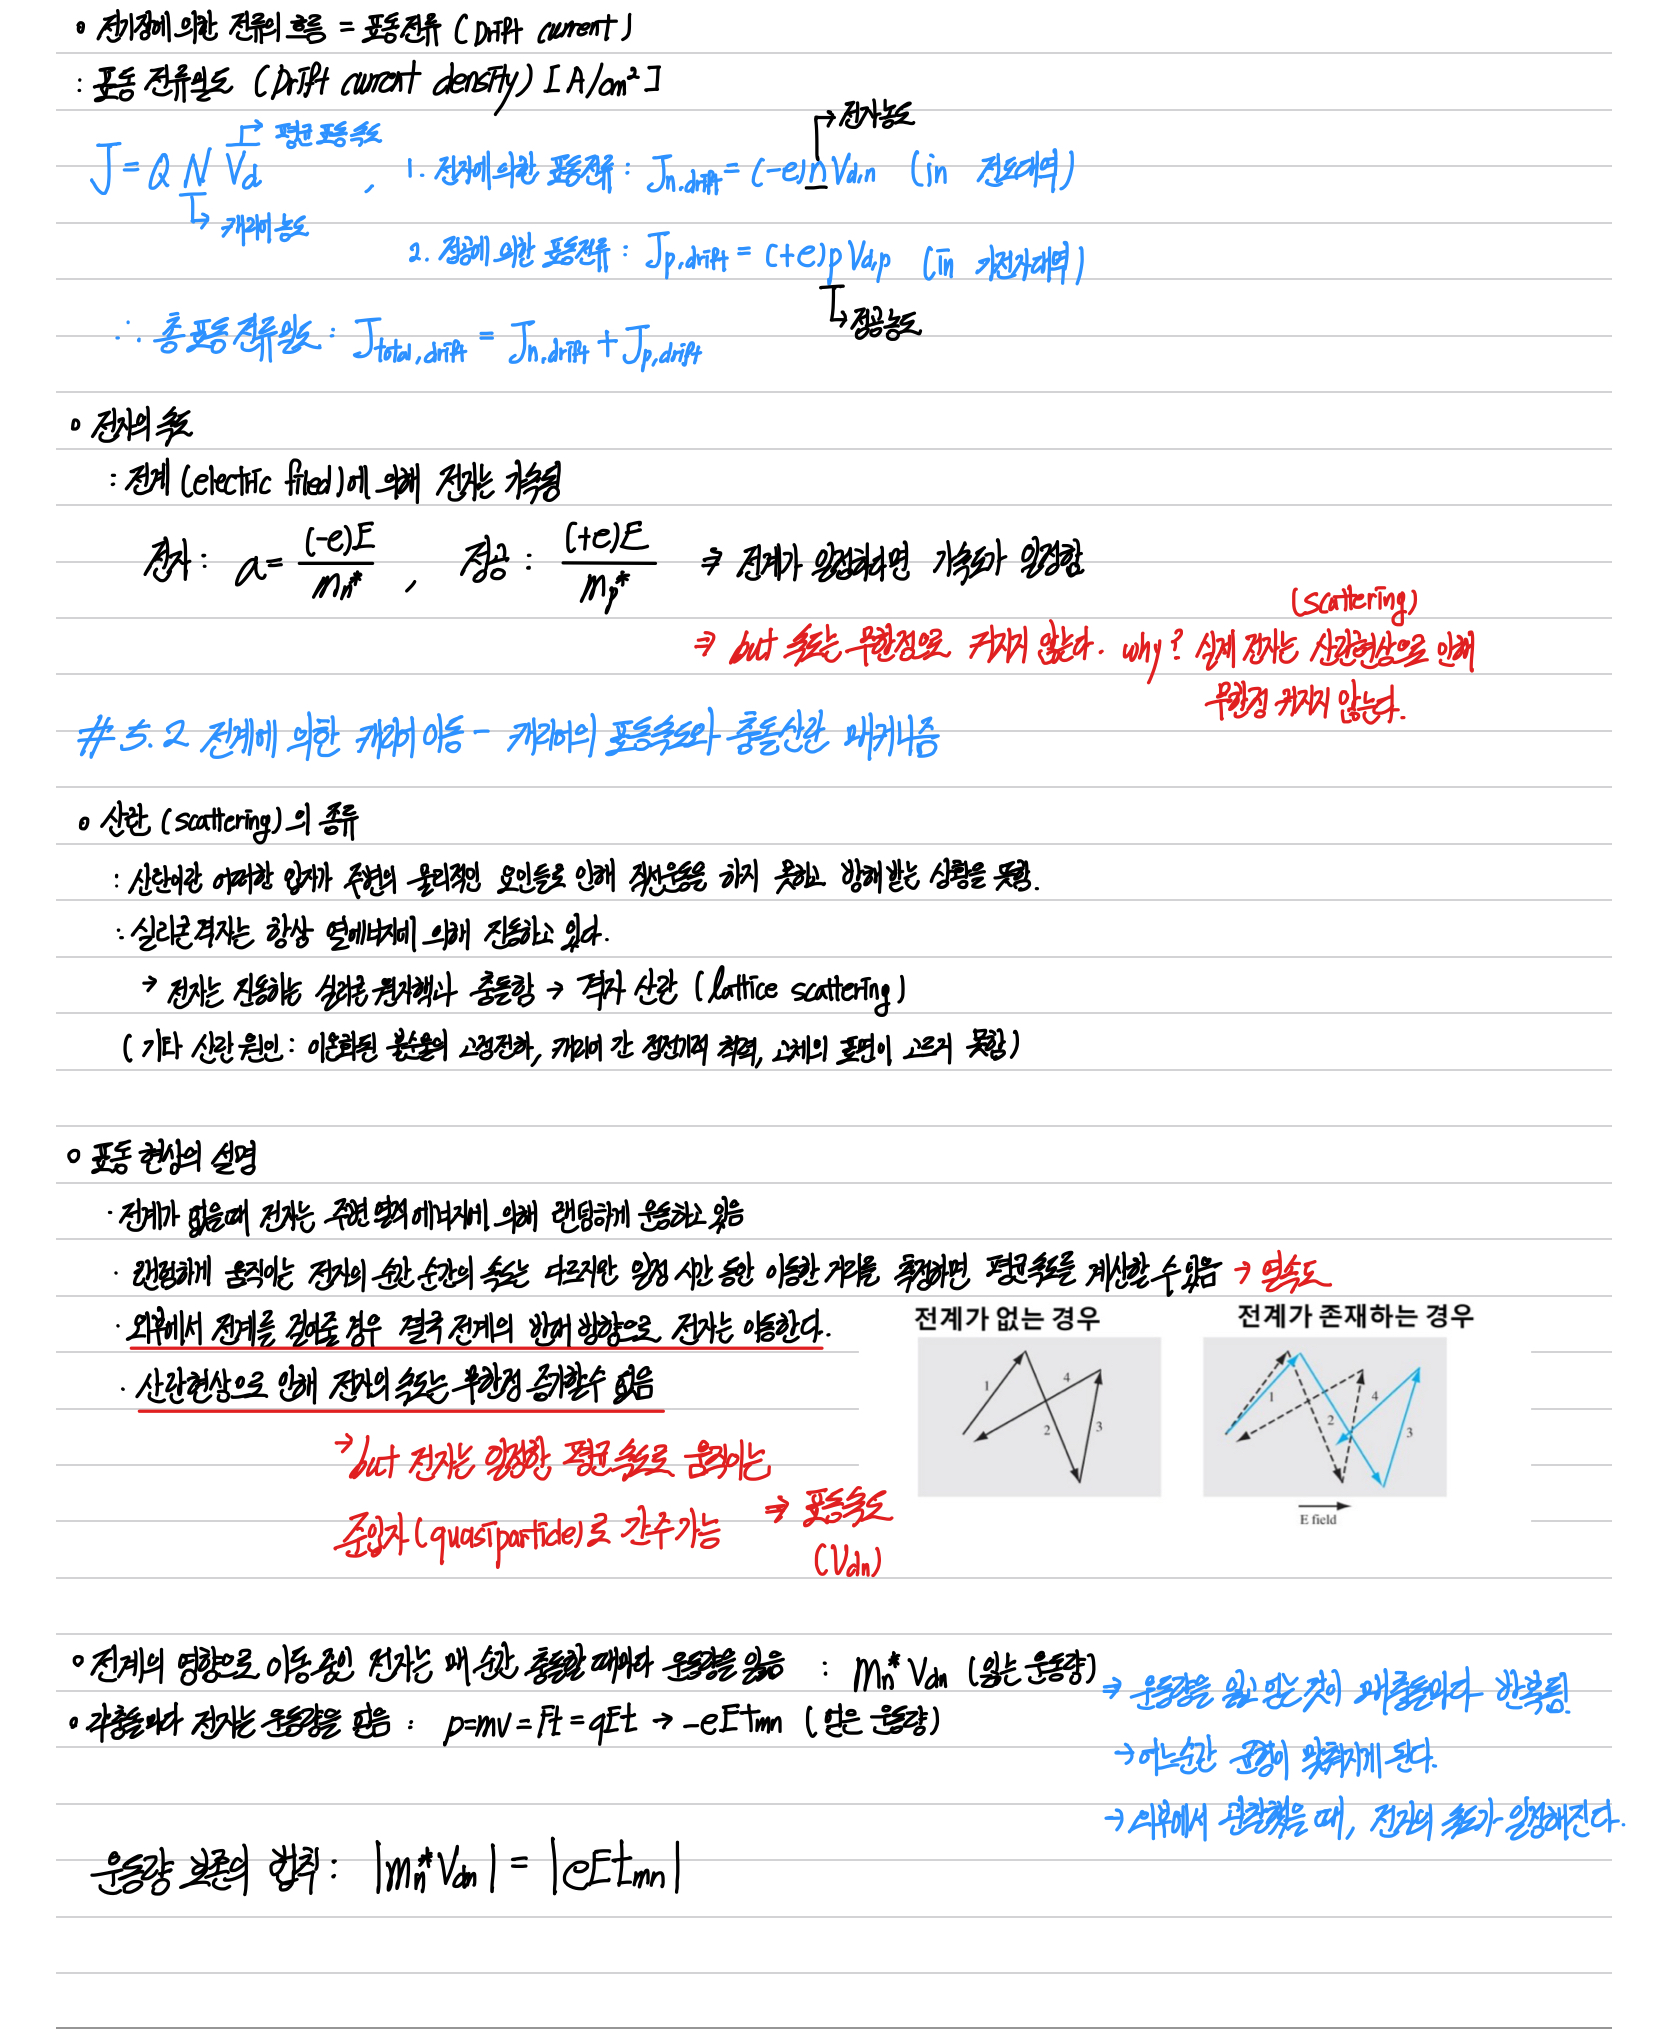 전기장에 의한 전류의 흐름 = 표동전류 (Drift current)
: 표동 전류밀도 (Drift current density) [A/cm²]
J = Q N Vd , → 평균 표동 속도
→ 캐리어 농도
→ 전자농도
1. 전자에 의한 표동전류 : Jn,drift = (-e)n Vd,n (in 전도대역)
2. 정공에 의한 표동전류 : Jp,drift = (+e)p Vd,p (in 가전자대역)
→ 정공농도
∴ 총 표동 전류밀도 : Jtotal,drift = Jn,drift + Jp,drift
전자의 속도
: 전계 (electric filed)에 의해 전자는 가속됨
전자 : a = (-e)E / mn* , 정공 : (+e)E / mp* ⇒ 전계가 일정하다면 가속도가 일정함
(scattering)
⇒ but 속도는 무한정으로 커지지 않는다. why? 실제 전자는 산란현상으로 인해
무한정 커지지 않는다.
# 5.2 전계에 의한 캐리어 이동 - 캐리어의 표동속도와 충돌산란 매커니즘
산란 (scattering)의 종류
: 산란이란 어떠한 입자가 주변의 물리적인 요인들로 인해 직선운동을 하지 못하고 방해받는 상황을 뜻함.
: 실리콘 격자는 항상 열에너지에 의해 진동하고 있다.
→ 전자는 진동하는 실리콘 원자핵과 충돌함 → 격자 산란 (lattice scattering)
(기타 산란 원인 : 이온화된 불순물의 고정전하, 캐리어 간 정전기적 척력, 고체의 표면이 고르지 못함)
표동 현상의 설명
· 전계가 없을때 전자는 주변 열적 에너지에 의해 랜덤하게 운동하고 있음
· 랜덤하게 움직이는 전자의 순간 순간의 속도는 다르지만 일정 시간 동안 이동한 거리를 측정하면 평균속도를 계산할 수 있음 → 열속도
· 외부에서 전계를 걸어줄 경우 결국 전계의 반대 방향으로 전자는 이동한다.
· 산란현상으로 인해 전자의 속도는 무한정 증가할수 없음
→ but 전자는 일정한 평균 속도로 움직이는
준입자 (quasiparticle)로 간주가능 ⇒ 표동속도
(Vdn)
전계가 없는 경우
1
2
3
4
전계가 존재하는 경우
1
2
3
4
E field
전계의 영향으로 이동 중인 전자는 매 순간 충돌할 때마다 운동량을 잃음 : mn* Vdn (잃는 운동량)
각충돌마다 전자는 운동량을 얻음 : p=mv = Ft = qEt → -eEtmn (얻은 운동량)
⇒ 운동량을 잃고 얻는 것이 매충돌마다 반복됨.
→ 어느순간 균형이 맞춰지게 된다.
→ 외부에서 관찰했을 때, 전자의 속도가 일정해진다.
운동량 보존의 법칙 : |mn* Vdn| = |eEtmn|